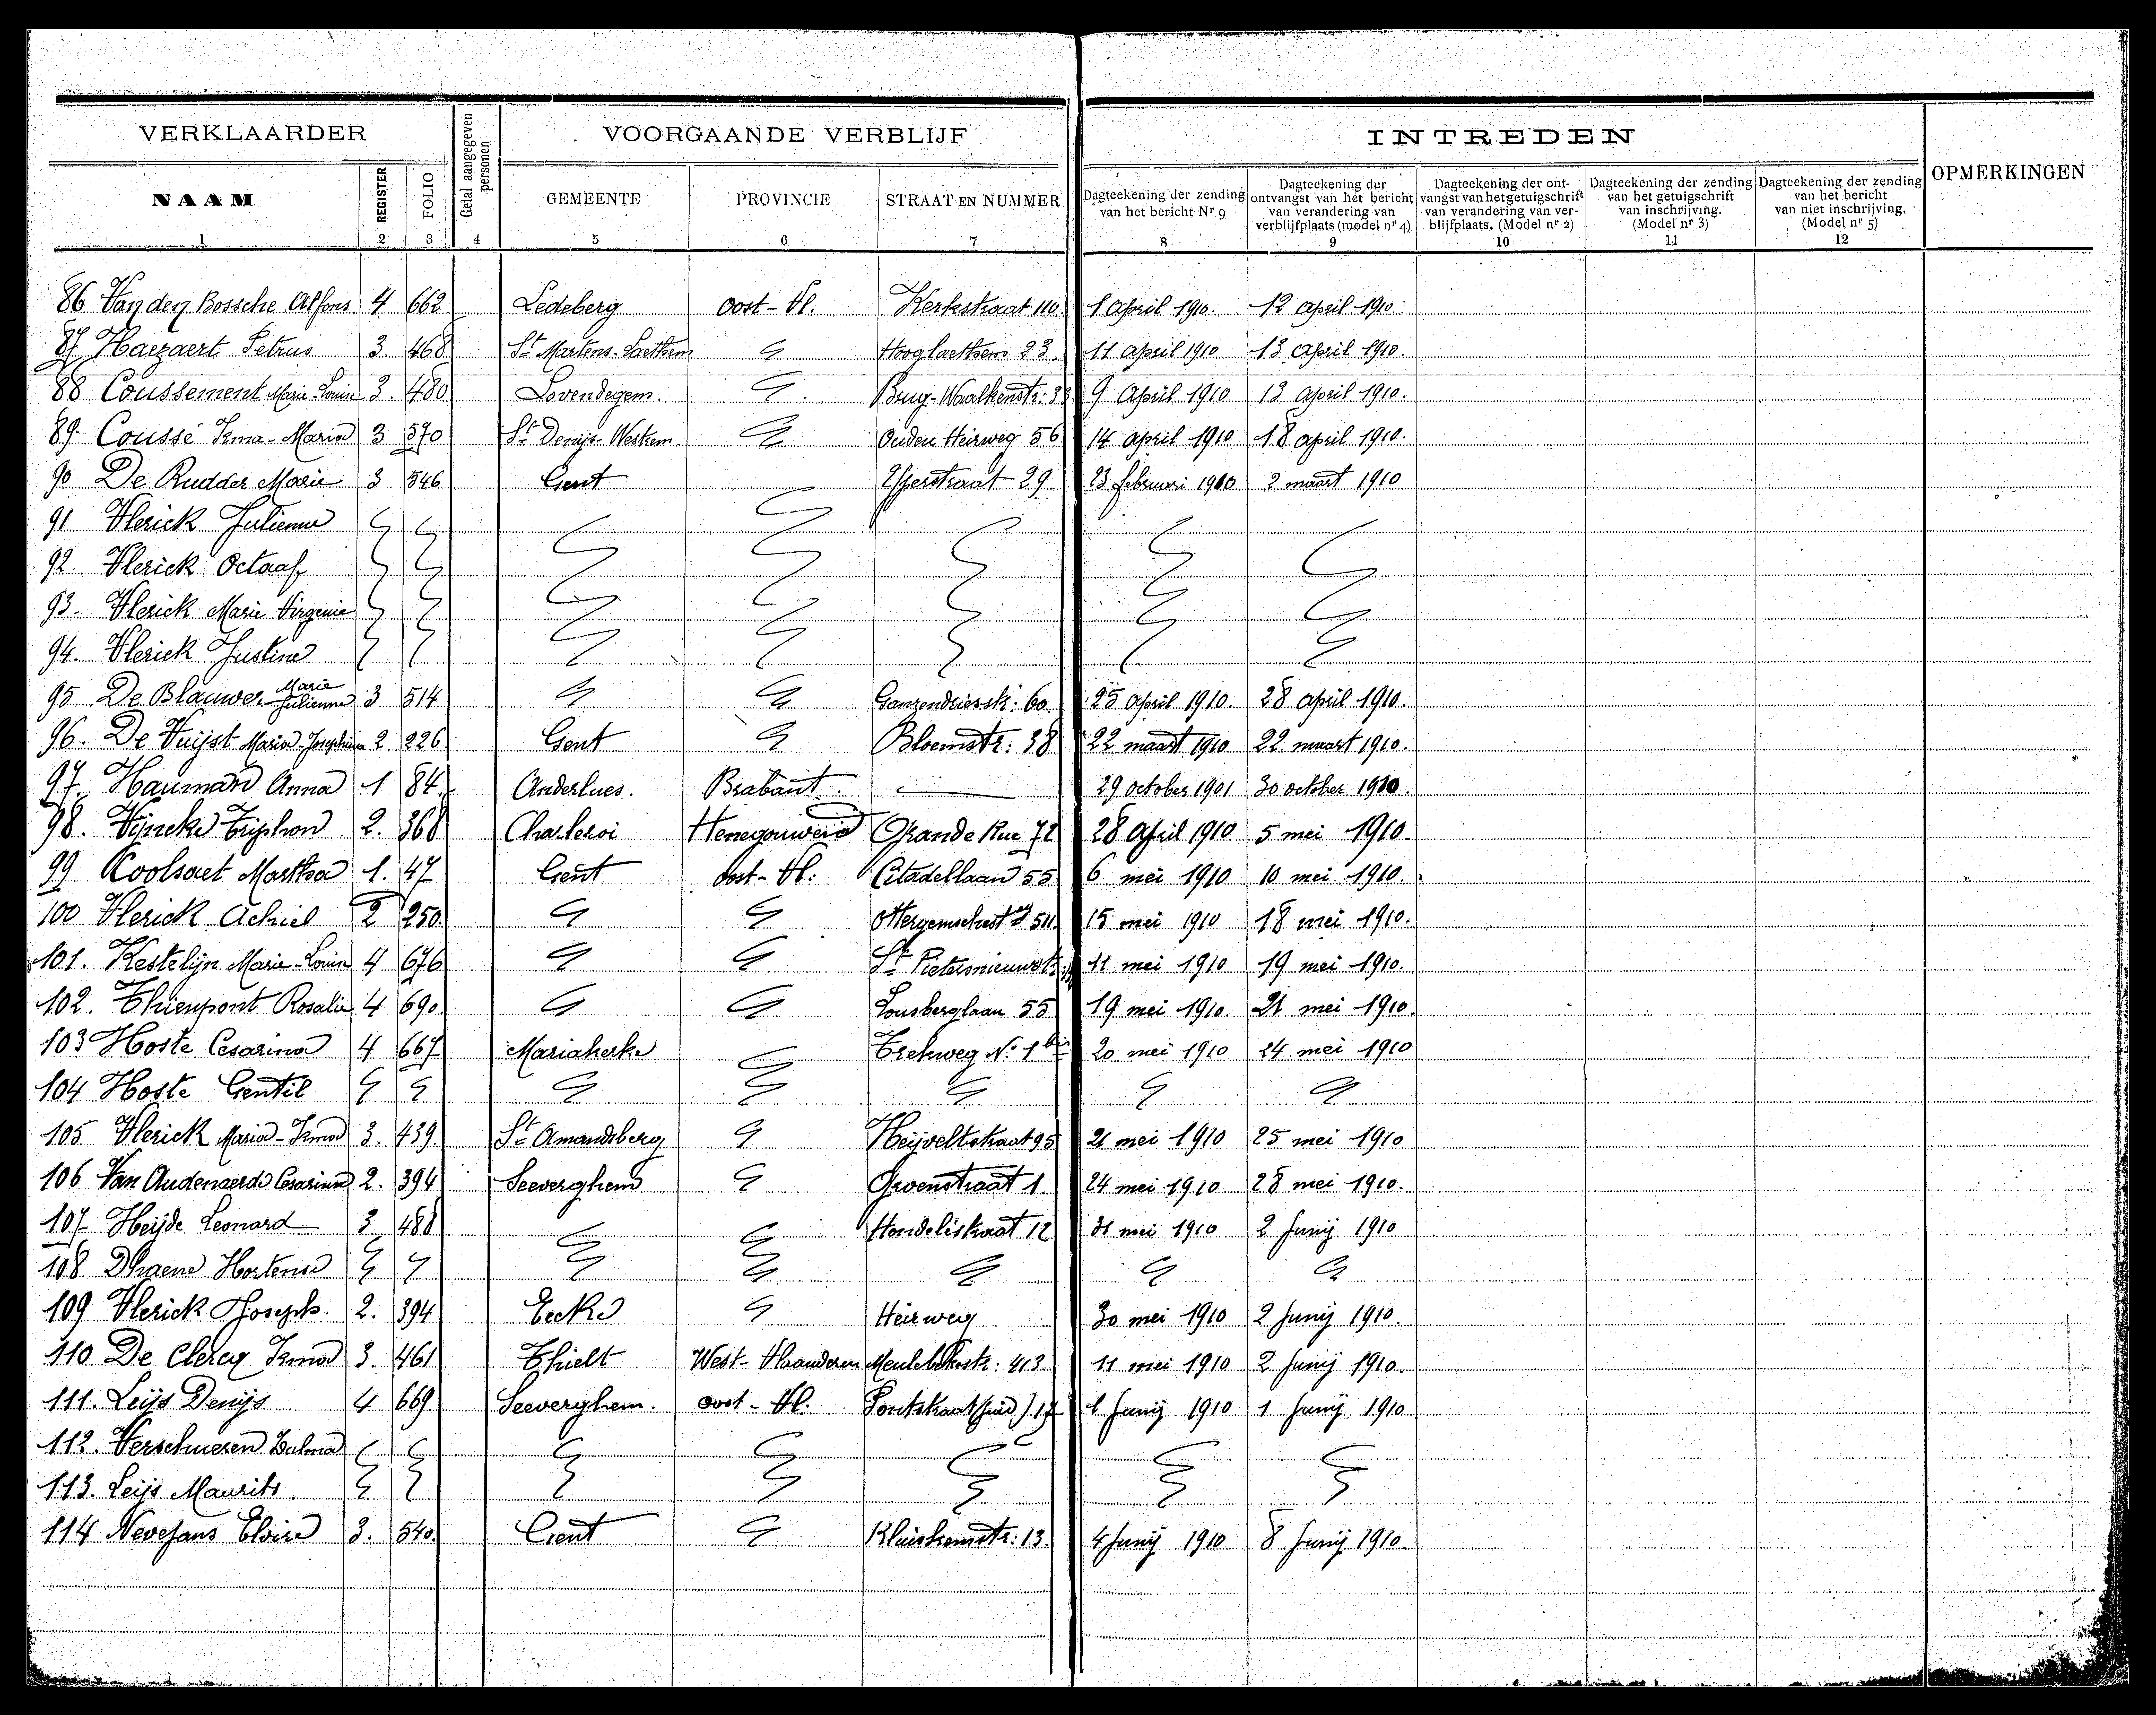 VERKLAARDER Getal aangegeven personen VOORGAANDE VERBLIJF INTREDEN OPMERKINGEN
NAAM REGISTER FOLIO GEMEENTE PROVINCIE STRAAT EN NUMMER
Dagteekening der zending van het bericht Nr 9
Dagteekening der ontvangst van het bericht van verandering van verblijfplaats (model nr 4)
Dagteekening der ontvangst van het getuigschrift van verandering van verblijfplaats. (Model nr 2)
Dagteekening der zending van het getuigschrift van inschrijving. (Model nr 3)
Dagteekening der zending van het bericht van niet inschrijving. (Model nr 5)
1 2 3 4 5 6 7 8 9 10 11 12
86 Van den Bossche Alfons 4 662 Ledeberg Oost-Vl. Kerkstraat 110 1 April 1910. 12 april 1910.
87 Haezaert Petrus 3 468 St Martens-Laethem Hooglaethem 23 11 april 1910 13 april 1910.
88 Coussement Marie Louise 3. 480 Lovendegem. 9 April 1910 13 april 1910.
89. Coussé Irma-Maria 3 570 St Denijs-Westrem. Ouden Heirweg 56 14 april 1910 18 april 1910.
90 De Rudder Marie 3 546 Gent 29 23 februari 1910 2 maart 1910
91 Vlerick Julienne
92. Vlerick Octaaf
93. Vlerick Marie Virgenie
94. Vlerick Justine
95 De Blauwer Marie Julienne 3 514 Ganzendriesstr: 60. 25 april 1910. 28 april 1910.
96. De Vuijst Maria-Josephina 2 226 Gent Bloemstr: 38 22 maart 1910 22 maart 1910.
97. Hauman Anna 1 84. Anderlues. Brabant. — 29 october 1901 30 october 1910.
98. Vijncke Triphon 2. 368 Charleroi Henegouwen Grande Rue 72 28 April 1910 5 mei 1910.
99 Coolsaet Martha 1. 47 Gent Oost-Vl: Citadellaan 55 6 mei 1910 10 mei 1910.
100 Vlerick Achiel 2 250. 15 mei 1910 18 mei 1910.
101. Kestelijn Marie-Louise 4 676 St Pietersnieuwstr. 11 mei 1910 19 mei 1910.
102. Thienpont Rosalie 4 690. Lousberglaan 55 19 mei 1910. 21 mei 1910.
103 Hoste Cesarina 4 667 Mariakerke Trekweg No 1 bis 20 mei 1910 24 mei 1910
104 Hoste Gentil
105 Vlerick Maria-Irma 3. 439. St Amandsberg Heijveltstraat 95 21 mei 1910 25 mei 1910
106 Van Audenaerde Cesarine 2. 394 Seeverghem Groenstraat 1. 24 mei 1910 28 mei 1910.
107 Heijde Leonard 3 488 Hondelestraat 12 31 mei 1910 2 Junij 1910
108 Dhaene Hortense
109 Vlerick Joseph. 2. 394 Eecke Heirweg 30 mei 1910 2 Junij 1910.
110 De Clercq Irma 3. 461 Thielt West-Vlaanderen Meulebekestr: 413 11 mei 1910 2 Junij 1910.
111. Leijs Denijs 4 669 Seeverghem. Oost-Vl. 17 1 Junij 1910 1 Junij 1910
112. Verschueren Zulma
113. Leijs Maurits.
114 Nevejans Eloise 3. 540. Gent Kluiskensstr: 13. 4 Junij 1910 8 Junij 1910.